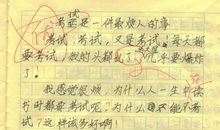 考试是一件最烦人的事
考试,考试,又是考试!每天都
要考试,做的头都乱了,几乎要爆炸
了。
我感觉很烦,为什么人一生中读
书时都要考试呢?为什么不能不考
试?这样该多好啊!